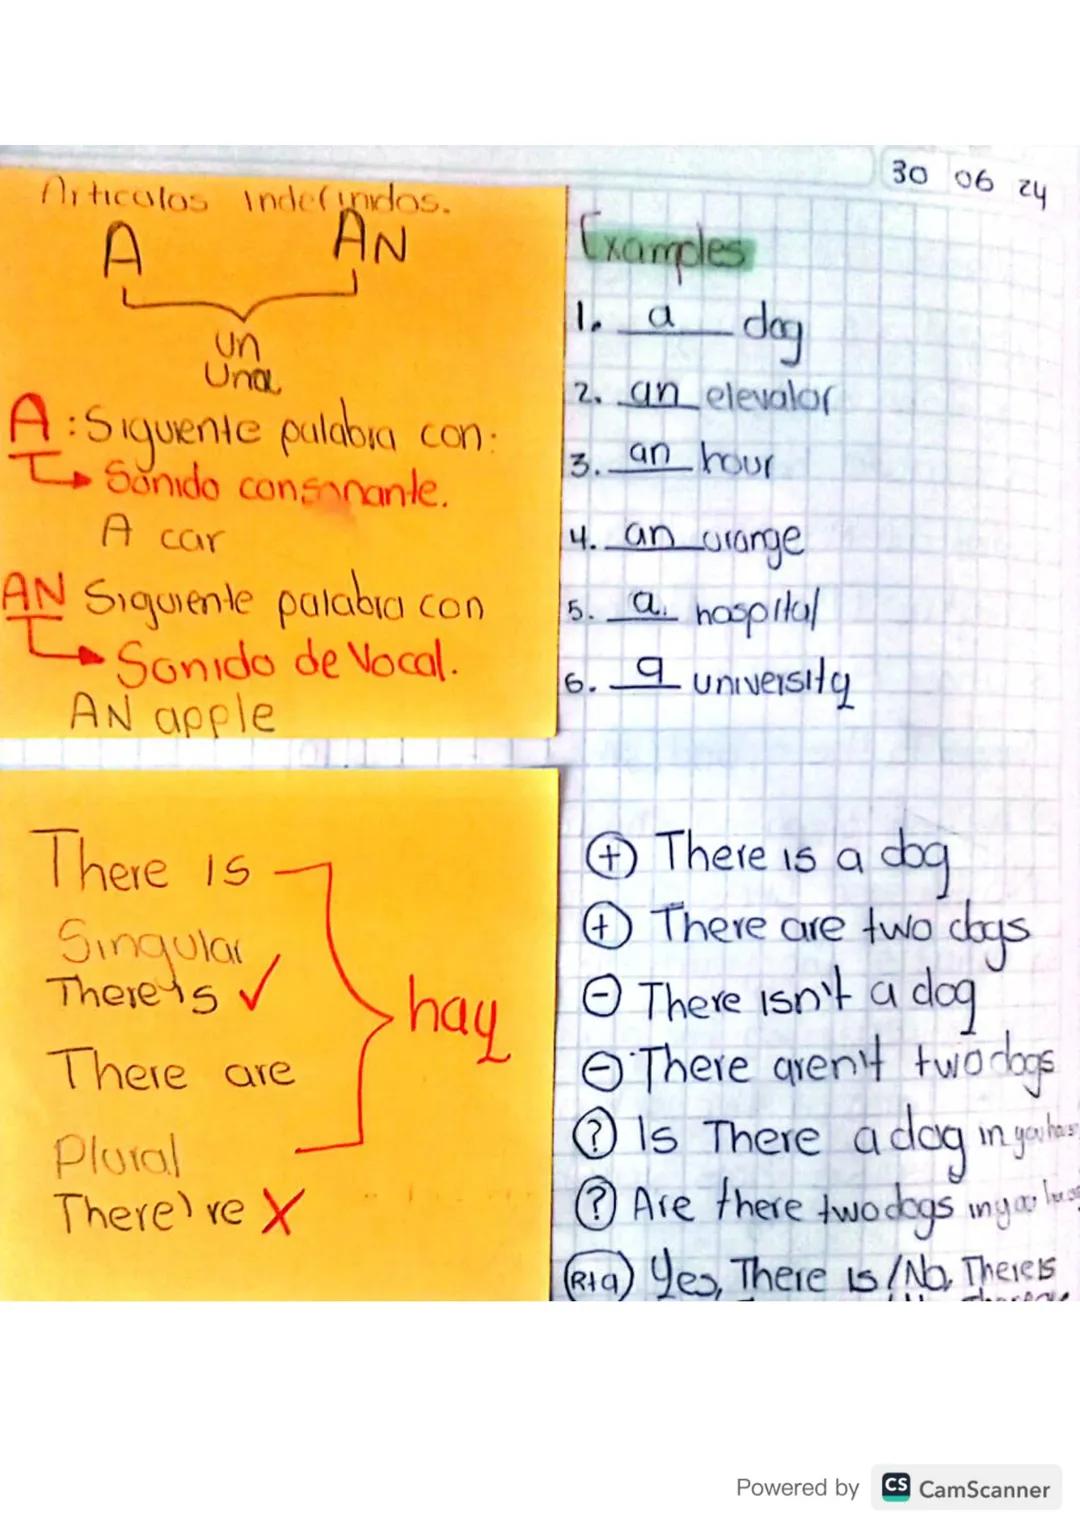 30 06 24
Artículos indefinidos.
A AN
un
Una
A : Siguiente palabra con:
Sonido consonante.
A car
AN Siguiente palabra con
Sonido de Vocal.
AN apple
Examples
1. a dog
2. an elevator
3. an hour
4. an orange
5. a. hospital
6. a university
There is
Singular
There's ✓
There are
Plural
There're X
hay
+ There is a dog
+ There are two dogs
- There isn't a dog
- There aren't two dogs
? Is There a dog in you
? Are there two dogs in you
Rta Yes, There is / No, There is